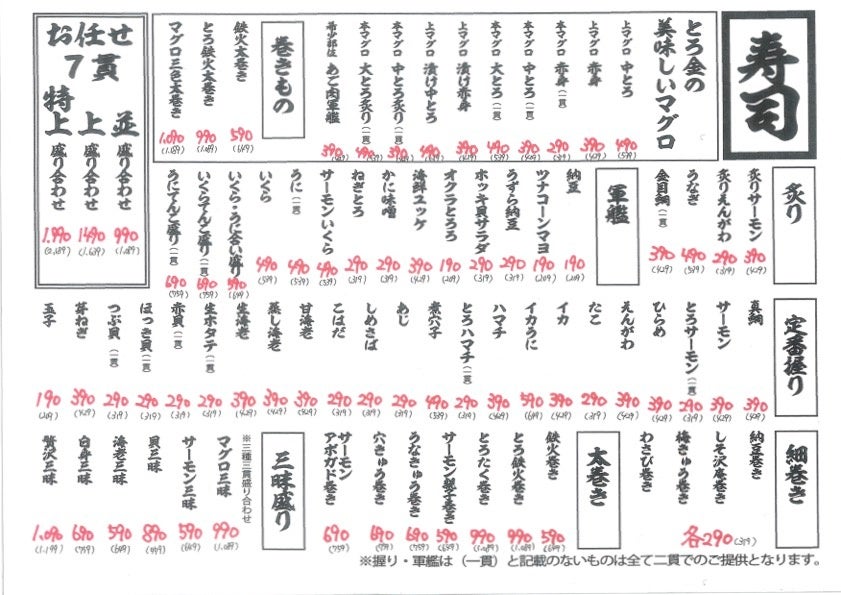 寿司
とろ金の
美味しいマグロ
上マグロ 中とろ 490 (539)
上マグロ 赤身 390 (429)
本マグロ 赤身(一貫) 290 (319)
本マグロ 中とろ(一貫) 390 (429)
本マグロ 大とろ(一貫) 490 (539)
上マグロ 漬け赤身 390 (429)
上マグロ 漬け中とろ 490 (539)
本マグロ 中とろ炙り(一貫) 390 (429)
本マグロ 大とろ炙り(一貫) 490 (539)
希少部位 あご肉軍艦 390 (429)
巻きもの
鉄火太巻き 590 (649)
とろ鉄火太巻き 990 (1.089)
マグロ三色太巻き 1.090 (1.189)
お任せ
7貫
並 盛り合わせ 990 (1.089)
上 盛り合わせ 1490 (1.639)
特上 盛り合わせ 1.990 (2.189)
炙り
炙りサーモン 390 (429)
炙りえんがわ 290 (319)
うなぎ 490 (539)
金目鯛(一貫) 390 (429)
軍艦
納豆 190 (209)
ツナコーンマヨ 190 (209)
うずら納豆 290 (319)
ホッキ貝サラダ 290 (319)
オクラとろろ 190 (209)
海鮮ユッケ 390 (429)
かに味噌 290 (319)
ねぎとろ 290 (319)
サーモンいくら 490 (539)
うに(一貫) 490 (539)
いくら 490 (539)
いくら・うに合い盛り 590 (649)
いくらてんこ盛り(一貫) 690 (759)
うにてんこ盛り(一貫) 690 (759)
定番握り
真鯛 390 (429)
サーモン 390 (429)
とろサーモン(一貫) 290 (319)
ひらめ 390 (429)
えんがわ 390 (429)
たこ 290 (319)
イカ 390 (429)
イカうに 590 (649)
ハマチ 390 (429)
とろハマチ(一貫) 290 (319)
煮穴子 490 (539)
あじ 290 (319)
しめさば 290 (319)
こはだ 290 (319)
甘海老 390 (429)
蒸し海老 390 (429)
生海老 390 (429)
生ホタテ(一貫) 290 (319)
赤貝(一貫) 290 (319)
ほっき貝(一貫) 290 (319)
つぶ貝(一貫) 290 (319)
芽ねぎ 390 (429)
玉子 190 (209)
細巻き
納豆巻き
しそ沢庵巻き
梅きゅう巻き
わさび巻き
各290 (319)
太巻き
鉄火巻き 590 (649)
とろ鉄火巻き 990 (1.089)
とろたく巻き 990 (1.089)
サーモン親子巻き 590 (649)
うなきゅう巻き 690 (759)
穴きゅう巻き 690 (759)
サーモン
アボガド巻き 690 (759)
三昧盛り
※三種三貫盛り合わせ
マグロ三昧 990 (1.089)
サーモン三昧 590 (649)
貝三昧 890 (979)
海老三昧 590 (649)
白身三昧 690 (759)
贅沢三昧 1.090 (1.199)
※握り・軍艦は(一貫)と記載のないものは全て二貫でのご提供となります。